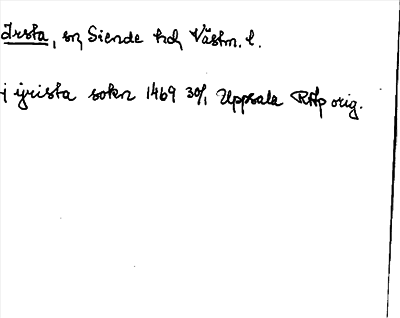 Irsta, sn Siende hd Västm. l.
i yrista sokn 1469 30/1 Uppsala RAp orig.